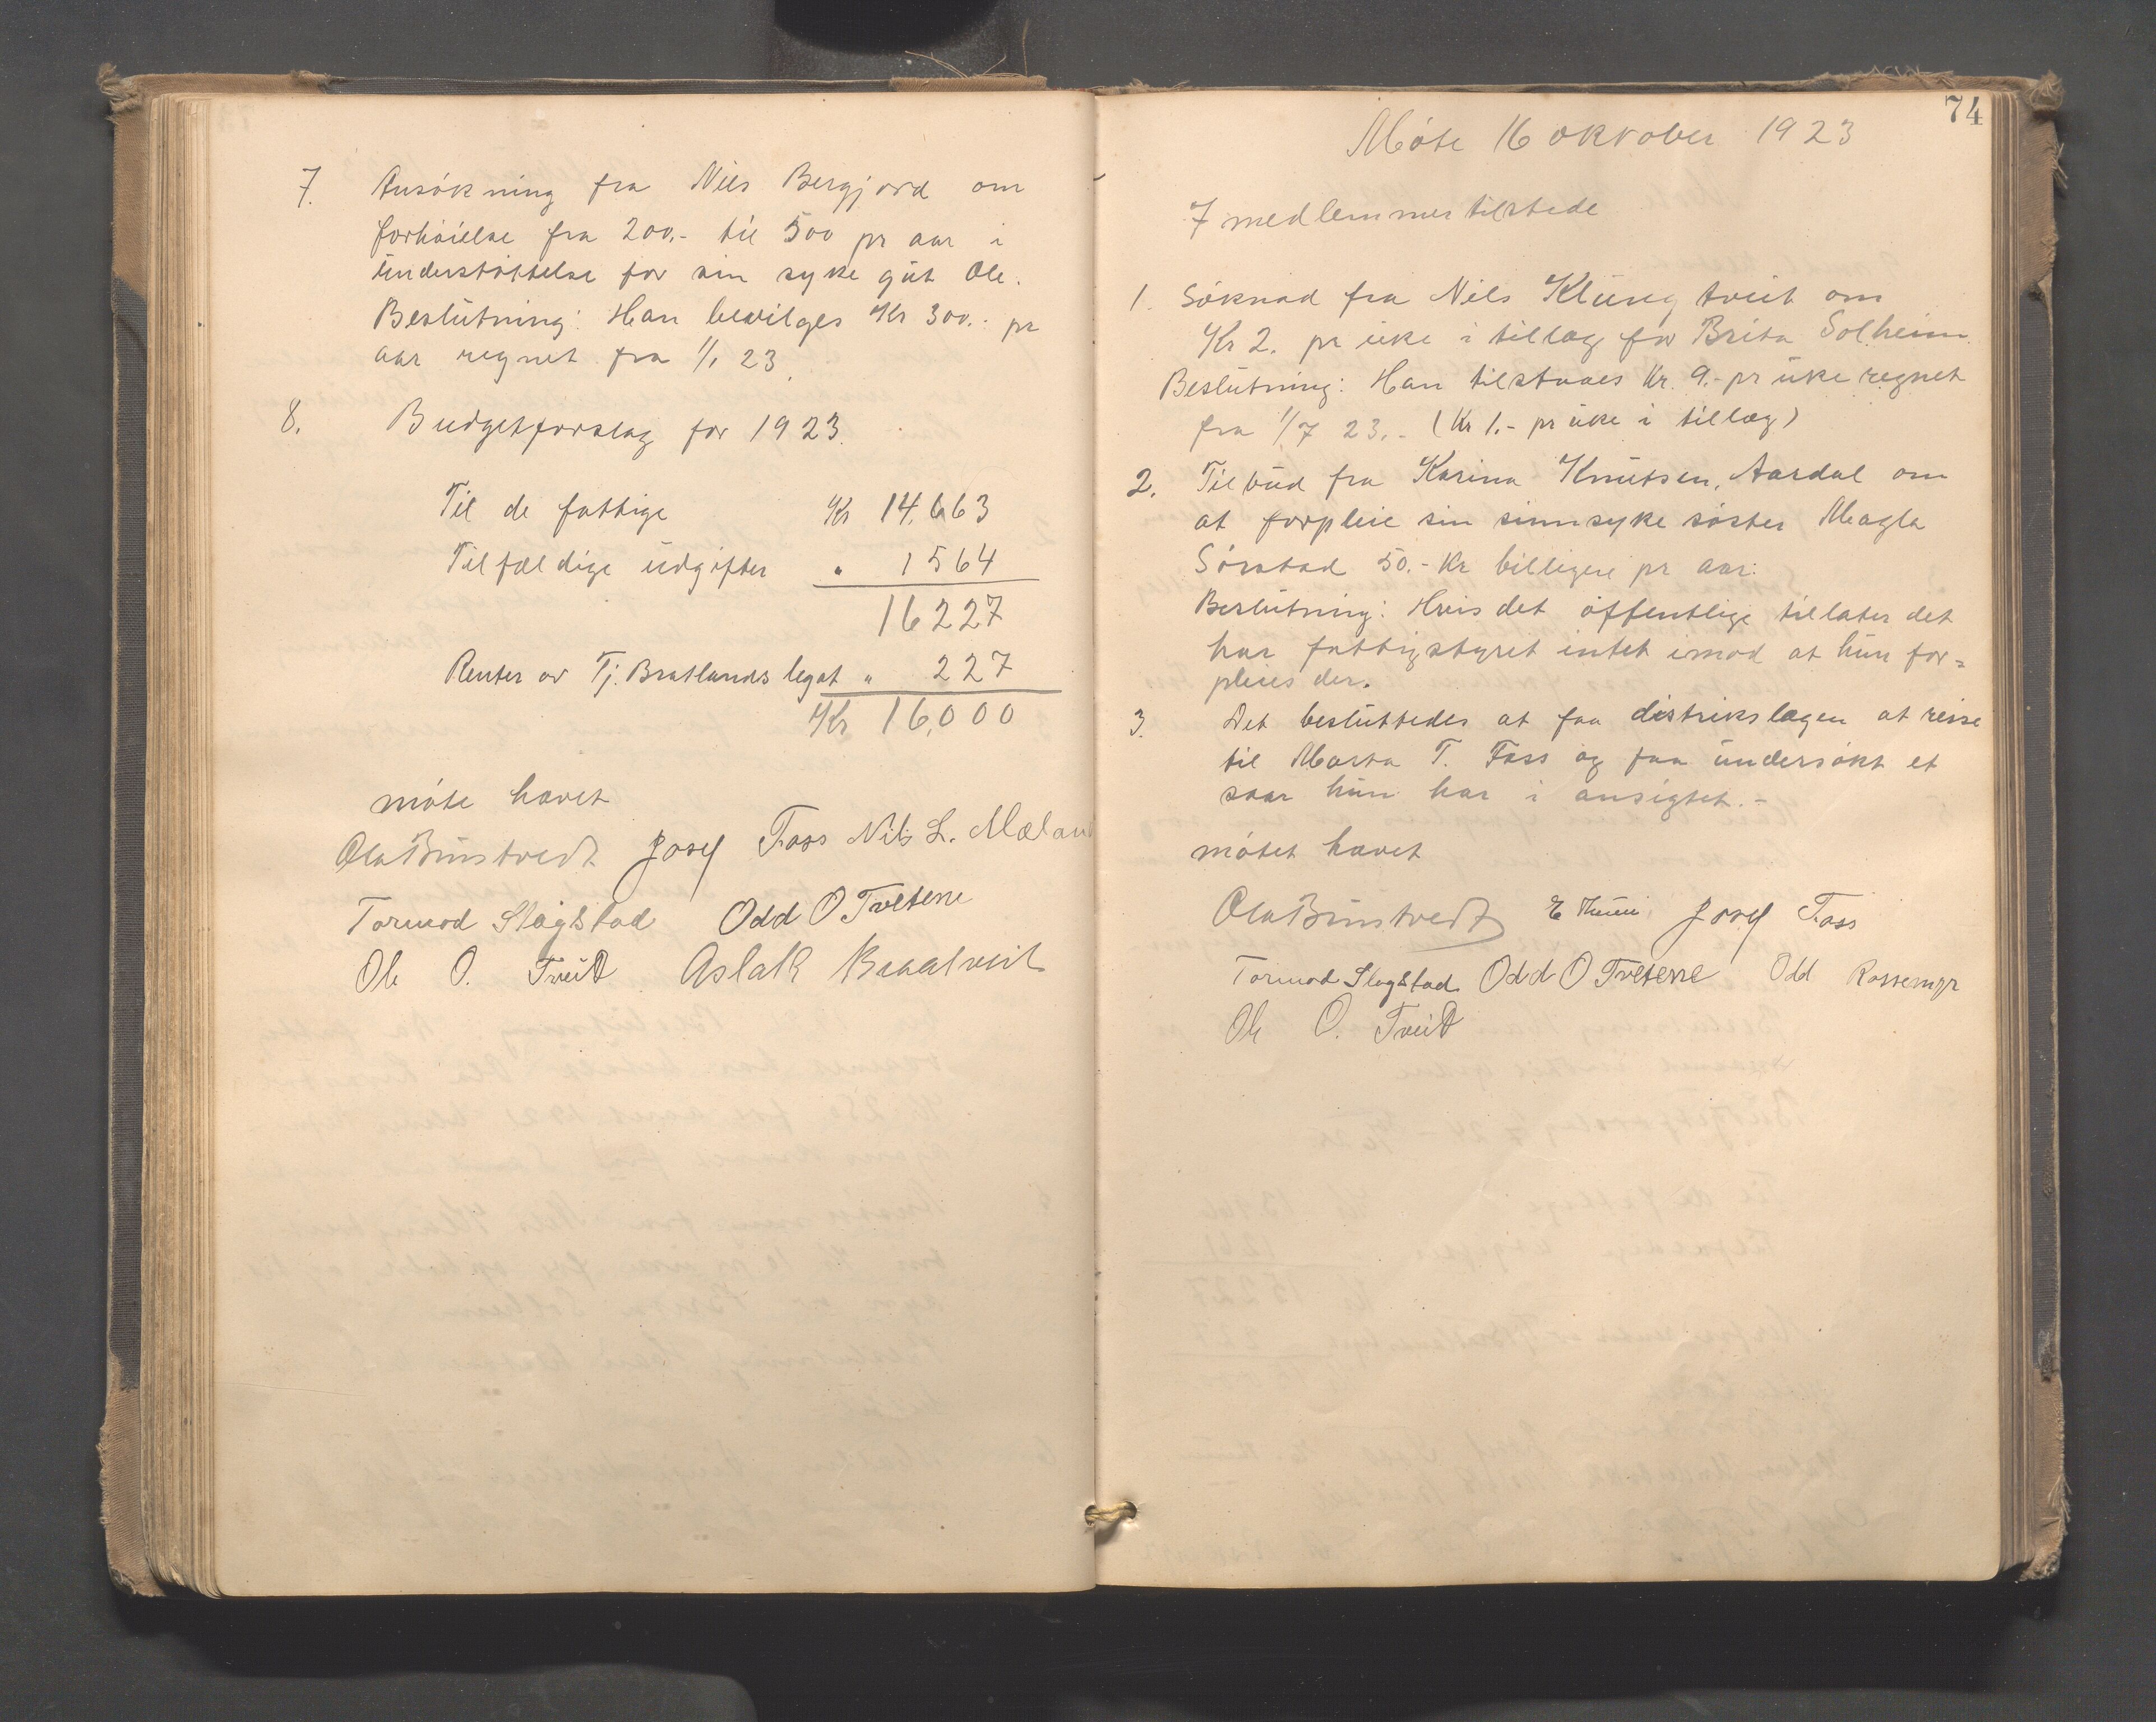 7. Ansökning fra Nils Bergjord om
forhöielse fra 200,- til 500 pr aar i
understöttelse for sin syke gut Ole.
Beslutning: Han bevilges Kr 300.- pr
aar regnet fra 1/1 23.
8. Budgetforslag for 1923.
Til de fattige Kr 14,663
Tilfældige udgifter " 1564
16227
Renter av Tj. Bratlands legat " 227
Kr 16,000
möte hævet
Ola Bustvedt Josef Foss Nils L. Mæland
Tormod Slogstad Odd O Tvetene
Ole O. Tveit Aslak Braatveit
74
Möte 16 oktober 1923
7 medlemmer tilstede
1. Söknad fra Nils Klungtveit om
Kr 2. pr uke i tillæg for Brita Solheim
Beslutning: Han tilstaaes Kr. 9.- pr uke regnet
fra 1/7 23.- (Kr 1.- pr uke i tillæg)
2. Tilbud fra Karina Knutsen, Aardal om
at forpleie sin sinnsyke söster Magla
Sörstad 50.- Kr billigere pr aar.
Beslutning: Hvis det offentlige tillater det
har fattigstyret intet imod at hun for=
pleies der.
3. Det besluttedes at faa distrikslægen at reise
til Marta T. Foss og faa undersökt et
saar hun har i ansigtet.-
mötet hævet
Ola Bustvedt E Josef Foss
Tormod Slogstad Odd O Tvetene Odd Rossemyr
Ole O. Tveit